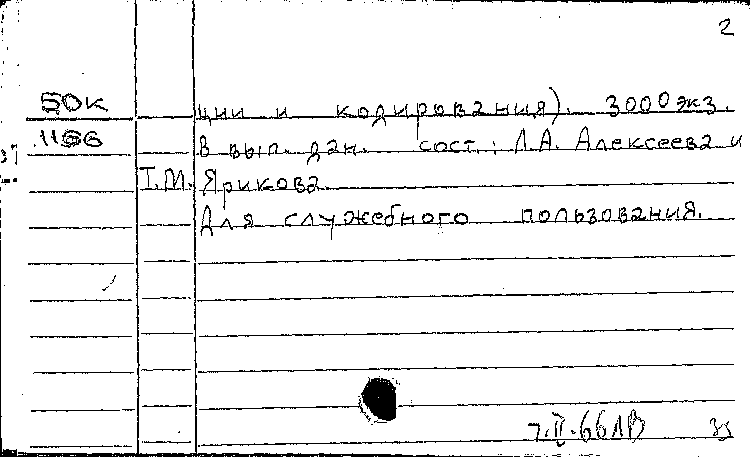 2
50К ции и кодирования). 3000 экз.
1166 В вып. дан. сост.: Л.А. Алексеева и
Т.М. Ярикова.
Для служебного пользования.
7.II.66